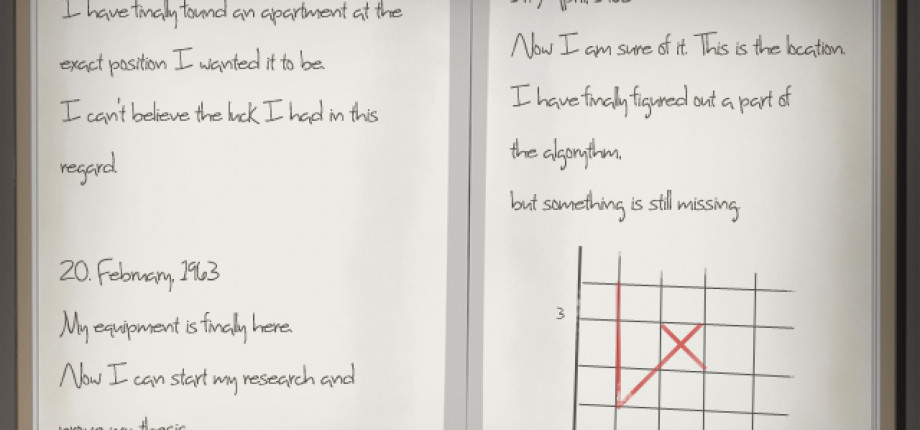 I have finally found an apartment at the
exact position I wanted it to be.
I can't believe the luck I had in this
regard.
20. February, 1963
My equipment is finally here.
Now I can start my research and
Now I am sure of it. This is the location.
I have finally figured out a part of
the algorythm,
but something is still missing
3